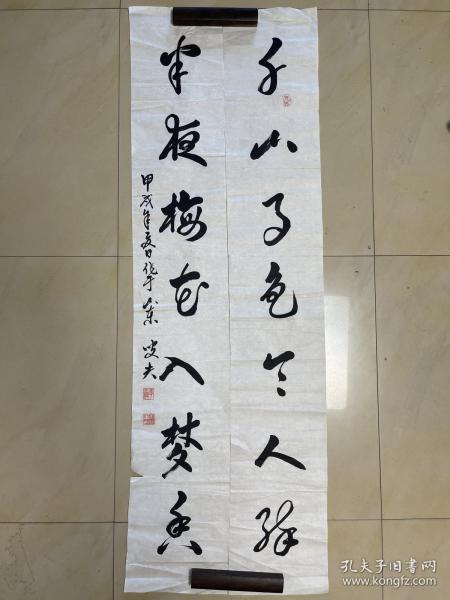 千山月色令人醉
半夜梅花入梦香
甲戌年夏日作于山东
孔夫子旧书网
www.kongfz.com